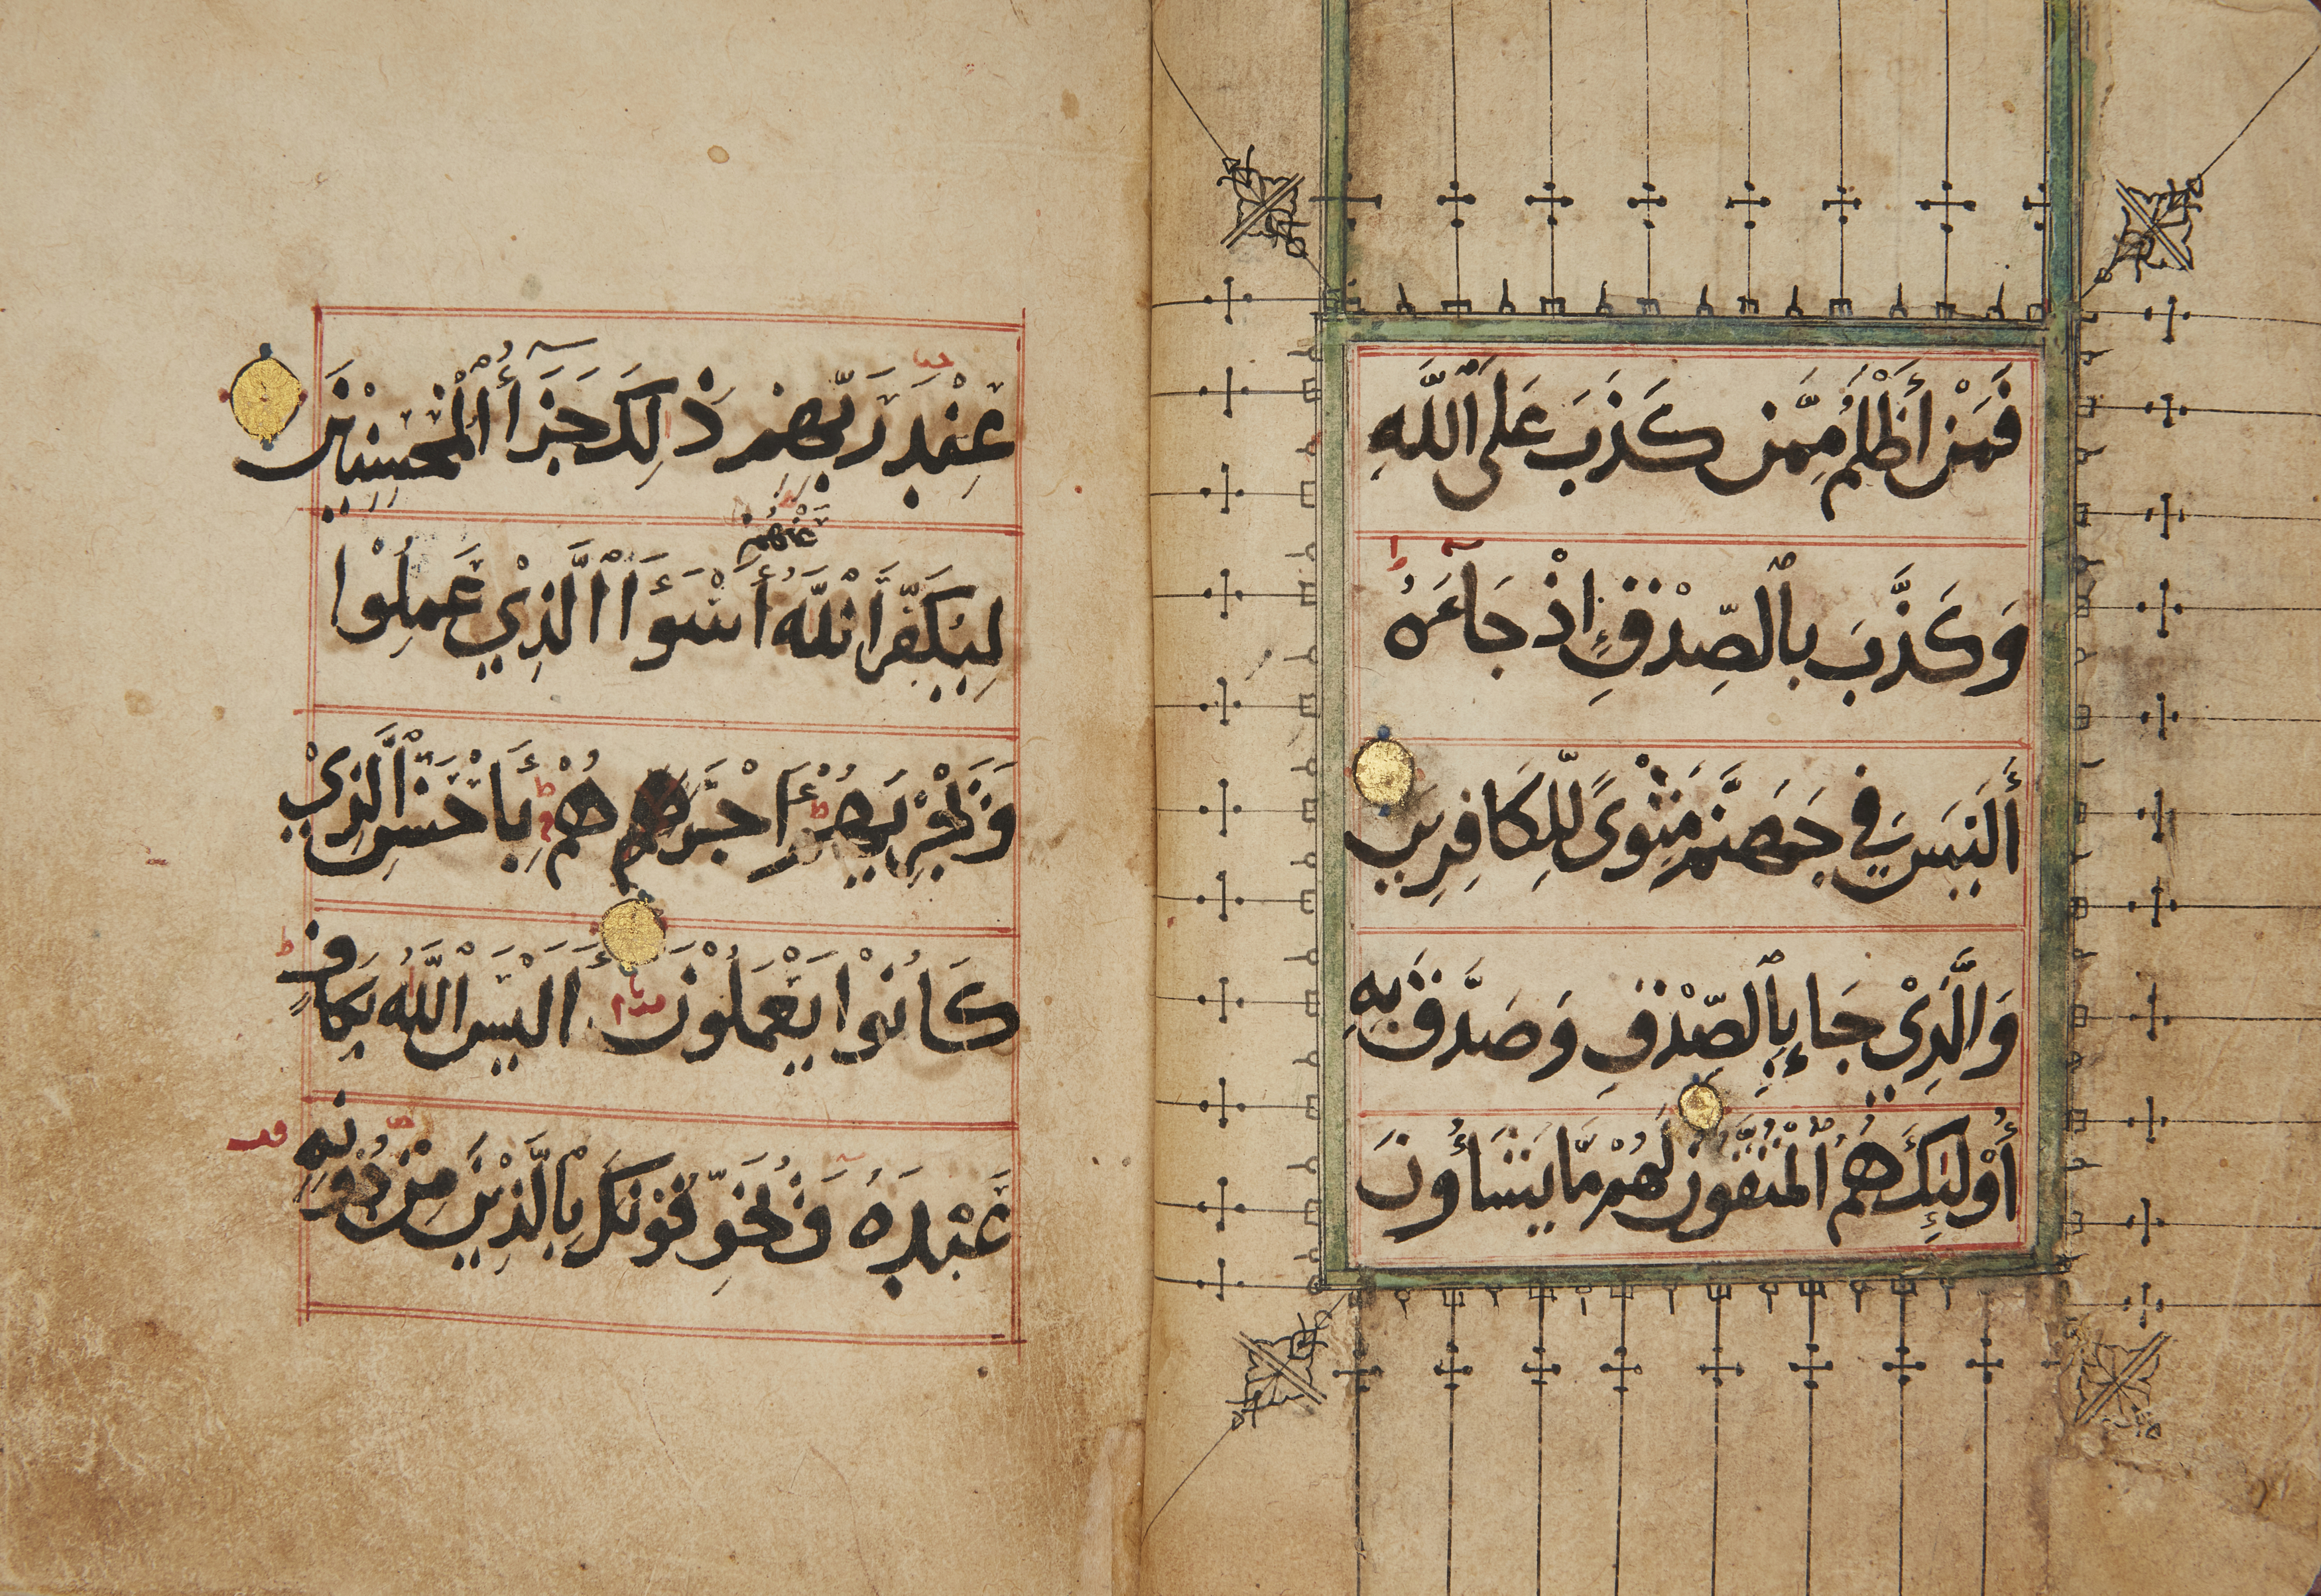 فَمَنْ أَظْلَمُ مِمَّن كَذَبَ عَلَى اللَّهِ
وَكَذَّبَ بِالصِّدْقِ إِذْ جَاءَهُ
أَلَيْسَ فِي جَهَنَّمَ مَثْوًى لِّلْكَافِرِينَ
وَالَّذِيْ جَاءَ بِالصِّدْقِ وَصَدَّقَ بِهِ
أُوْلَئِكَ هُمُ الْمُتَّقُونَ لَهُمْ مَّا يَشَاءُونَ
عِنْدَ رَبِّهِمْ ذَلِكَ جَزَاءُ الْمُحْسِنِيْنَ
عَنْهُمْ
لِيُكَفِّرَ اللَّهُ أَسْوَأَ الَّذِيْ عَمِلُوْا
وَيَجْزِيَهُمْ أَجْرَهُمْ بِأَحْسَنِ الَّذِيْ
كَانُوْا يَعْمَلُوْنَ أَلَيْسَ اللَّهُ بِكَافٍ
عَبْدَهُ وَيُخَوِّفُوْنَكَ بِالَّذِيْنَ مِنْ دُوْنِهِ